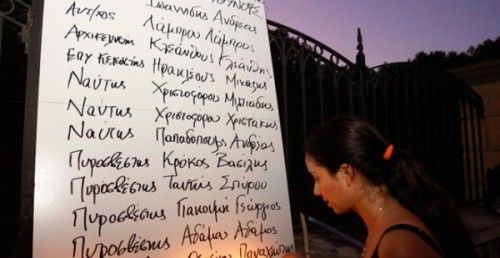 Αντ/χος Ιωαννίδης Ανδρέας
Λάμπρου Λάμπρος
Αρχικελευστής Κλεάνθους Κλεάνθης
Επικελευστής Ηρακλέους Μιχάλης
Ναύτης Χριστοφόρου Μιλτιάδης
Ναύτης Χριστοφόρου Χριστάκης
Ναύτης Παπαδόπουλος Ανδρέας
Πυροσβέστης Κρόκος Βασίλης
Πυροσβέστης Ταντής Σπύρου
Πυροσβέστης Γιακουμή Γεώργιος
Πυροσβέστης Αδάμου Αδάμος
Παναγιώτης